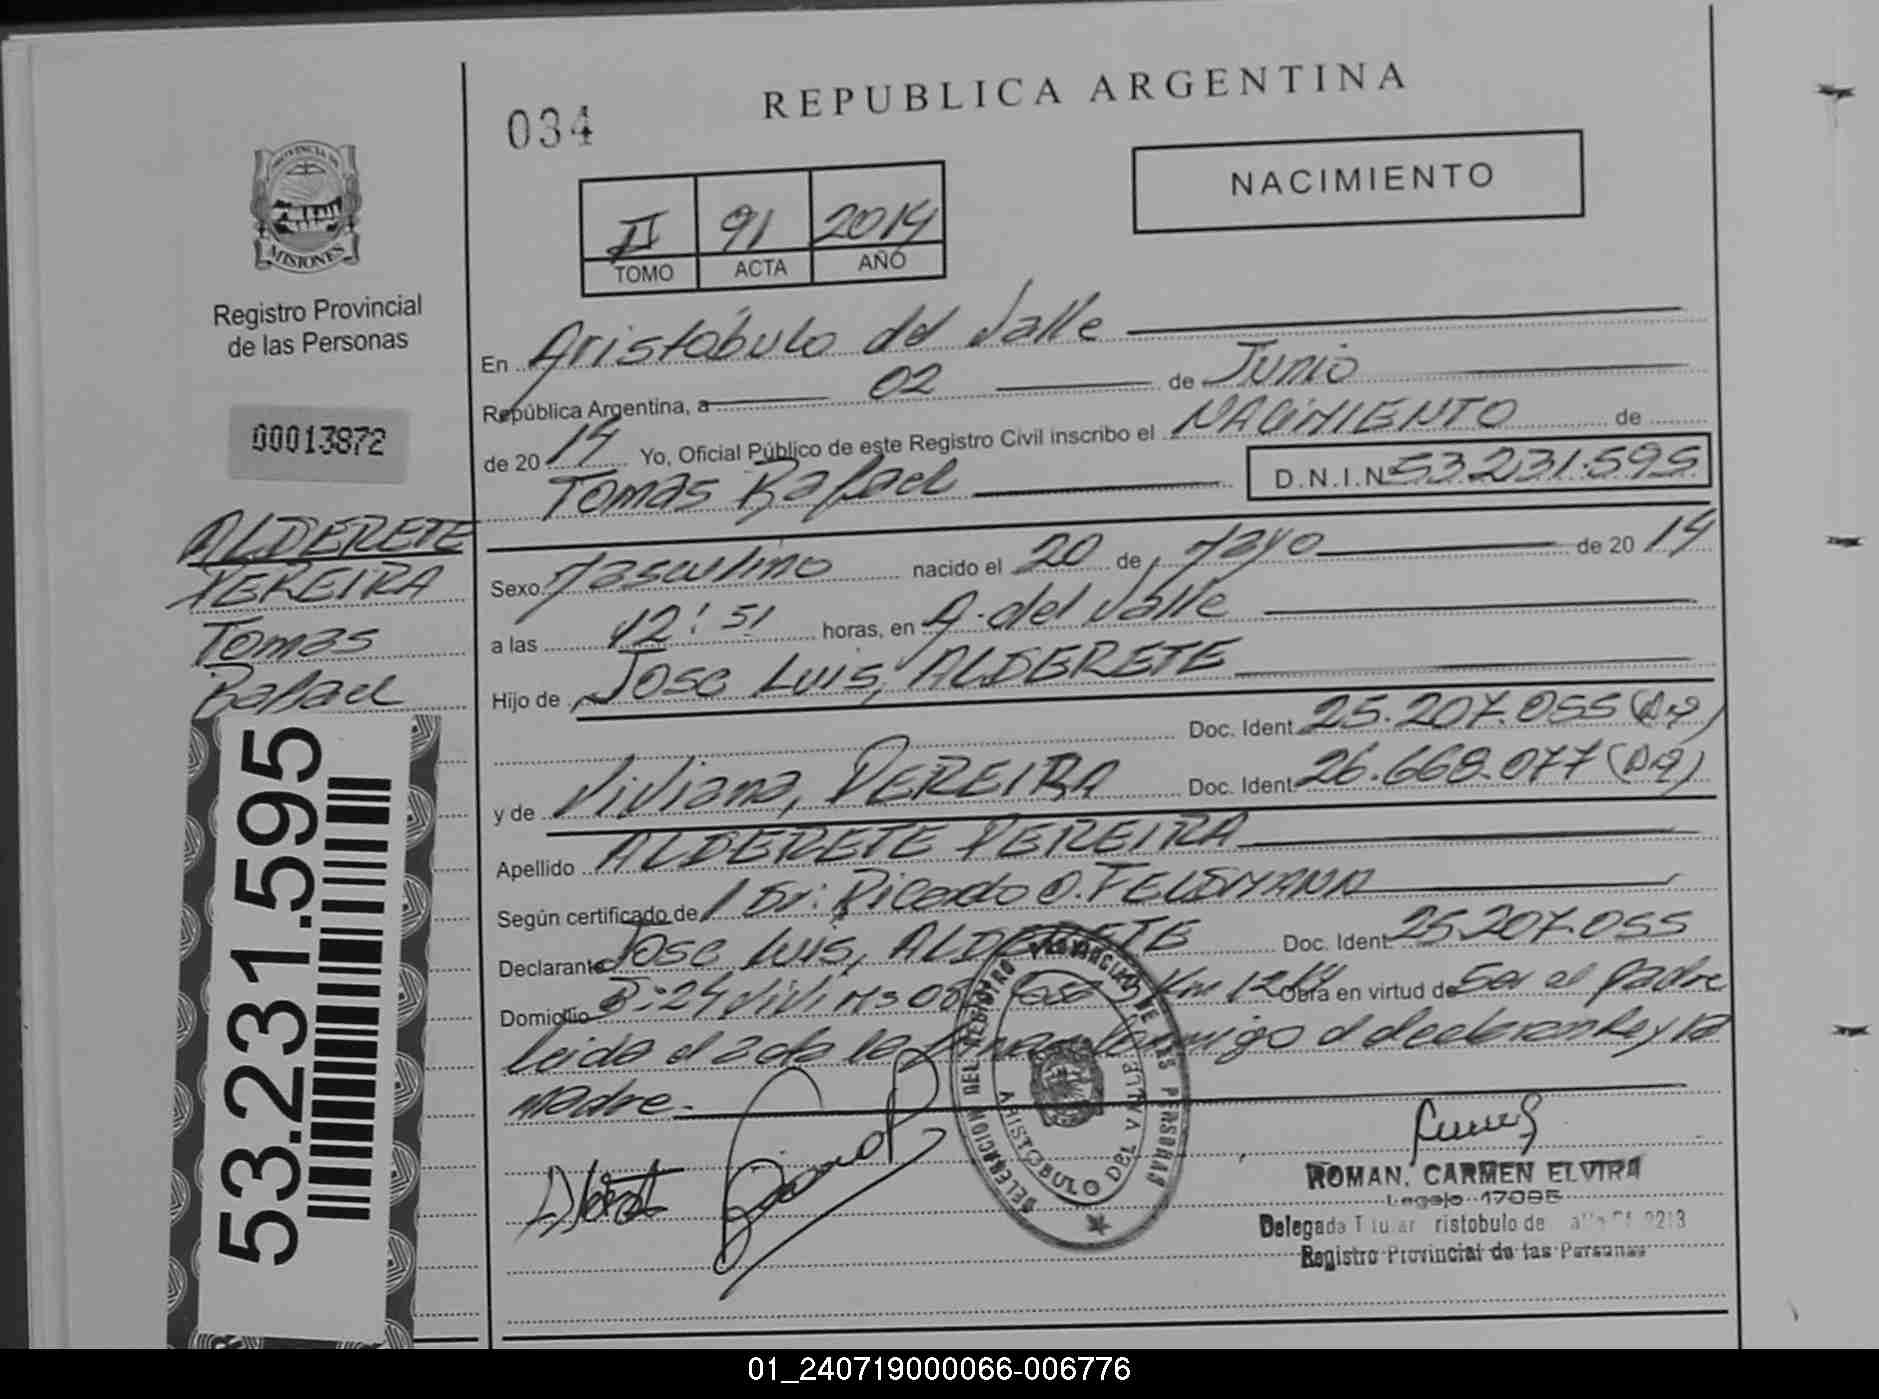 REPUBLICA ARGENTINA
034
NACIMIENTO
II 91 2014
TOMO ACTA AÑO
PROVINCIA DE
MISIONES
Registro Provincial
de las Personas
00013872
ALDERETE
PEREIRA
Tomas
Rafael
53.231.595
En Aristóbulo del Valle
República Argentina, a 02 de Junio
de 20 14 Yo, Oficial Público de este Registro Civil inscribo el NACIMIENTO de
Tomas Rafael D.N.I.Nº 53.231.595
Sexo Masculino nacido el 20 de Mayo de 20 14
a las 12:51 horas, en A. del Valle
Hijo de Jose Luis, ALDERETE
Doc. Ident. 25.207.055
y de Viviana, PEREIRA Doc. Ident. 26.668.077
Apellido ALDERETE PEREIRA
Según certificado de Dr. Ricardo O. FELDMANN
Declarante Jose Luis, ALDERETE Doc. Ident. 25.207.055
Domicilio B: 24 Casa Km 12 Obra en virtud de Ser el padre
leida el acta la firman conmigo el declarante y la
madre.-
DELEGACION DEL REGISTRO PROVINCIAL DE LAS PERSONAS
ARISTOBULO DEL VALLE
ROMAN, CARMEN ELVIRA
Legajo 17085
Delegada Titular ristobulo de 2213
Registro Provincial de las Personas
01_240719000066-006776